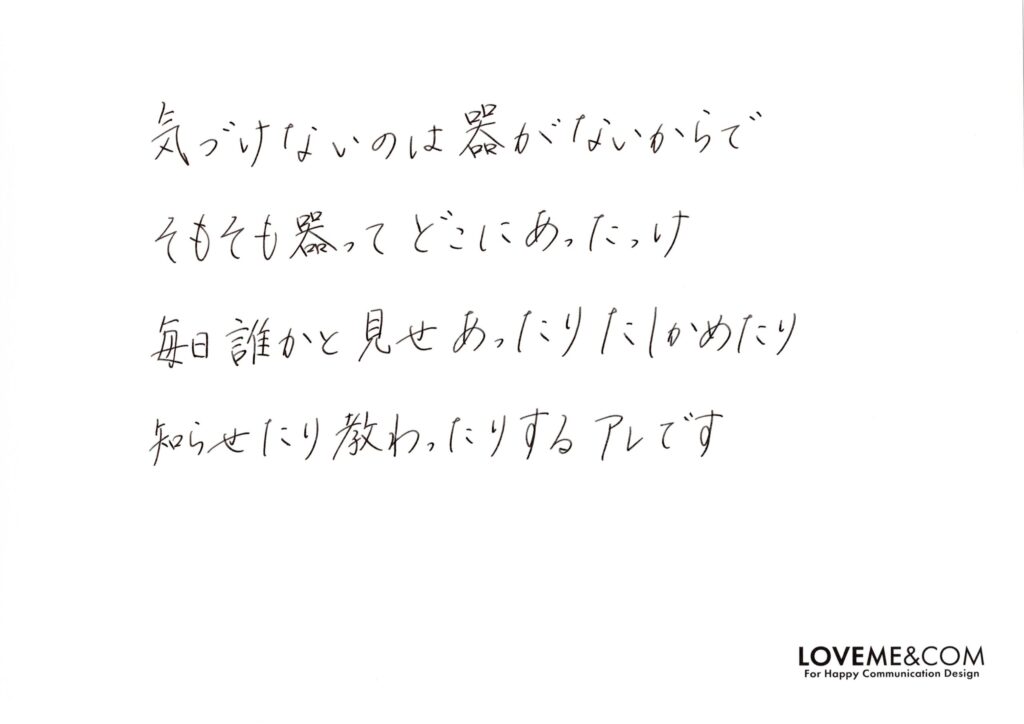 気づけないのは器がないからで
そもそも器ってどこにあったっけ
毎日誰かと見せあったりたしかめたり
知らせたり教わったりするアレです
LOVEME&COM
For Happy Communication Design